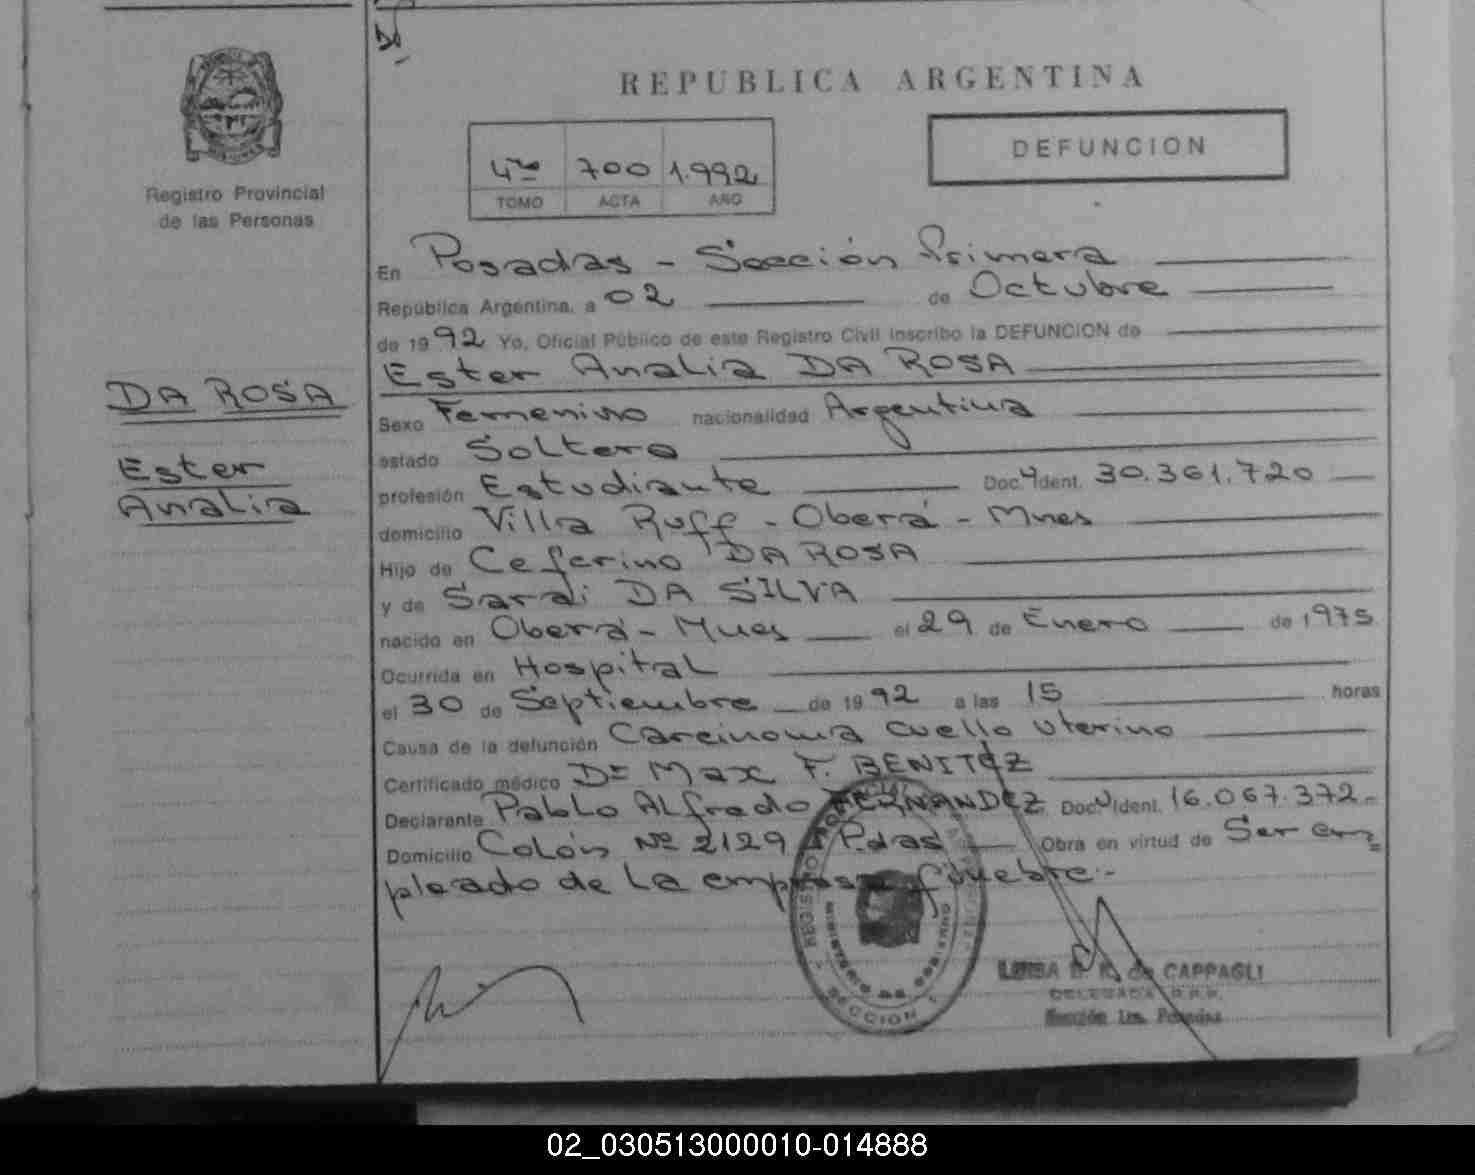 REPUBLICA ARGENTINA
DEFUNCION
4to 700 1.992
TOMO ACTA AÑO
Registro Provincial
de las Personas
En Posadas - Sección Primera
República Argentina, a 02 de Octubre
de 1992 Yo, Oficial Público de este Registro Civil inscribo la DEFUNCION de
Ester Analia DA ROSA
DA ROSA
Ester
Analia
Sexo Femenino nacionalidad Argentina
estado Soltera
profesión Estudiante Doc. Ident. 30.361.720
domicilio Villa Ruff - Oberá - Mnes
Hijo de Ceferino DA ROSA
y de Sarai DA SILVA
nacido en Oberá - Mnes el 29 de Enero de 1975
Ocurrida en Hospital
el 30 de Septiembre de 1992 a las 15 horas
Causa de la defunción Carcinoma Cuello Uterino
Certificado médico Dr Max F. BENITEZ
Declarante Pablo Alfredo FERNANDEZ Doc. Ident. 16.067.372.-
Domicilio Colón Nº 2129 Pdas Obra en virtud de Ser em=
pleado de la empresa fúnebre.-
REGISTRO
MINISTERIO DE GOBIERNO
SECCION 1
de CAPPAGLI
DELEGADA R.P.P.
Sección 1ra. Posadas
02_030513000010-014888